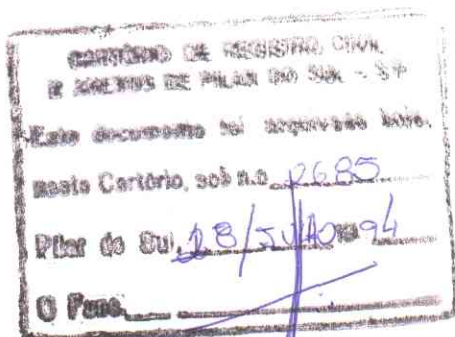 CARTÓRIO DE REGISTRO CIVIL
E ANEXOS DE PILAR DO SUL - SP
Este documento foi arquivado hoje,
neste Cartório, sob n.o 2685
Pilar do Sul, 28/JULHO 94
O Func.